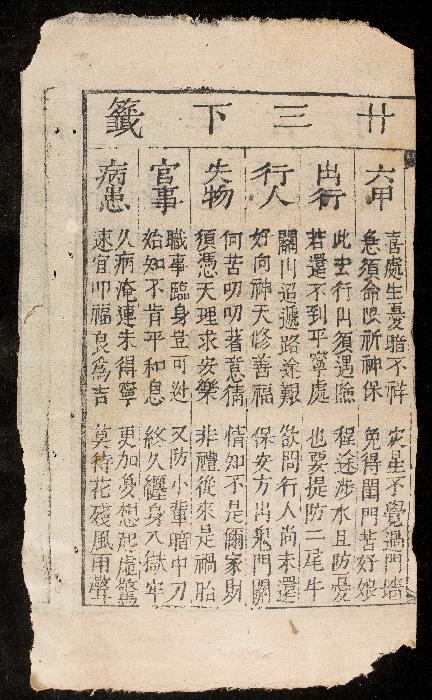 廿三下籤
六甲
喜處生憂暗不祥 災星不覺過門墻
急須命限祈神保 免得閨門苦好娘
出行
此去行山須遇險 程途涉水且防憂
若還不到平寧處 也要提防二尾牛
行人
關川迢遞路途艱 欲問行人尚未還
好向神天修善福 保安方出鬼門關
失物
何苦叨叨著意猜 情知不是爾家財
須憑天理求安樂 非禮從來是禍胎
官事
職事臨身豈可逃 又防小輩暗中刀
始知不肯平和息 終久纏身入獄牢
病患
久病淹連未得寧 更加多想起虛驚
速宜叩福良爲吉 莫待花殘風雨聲